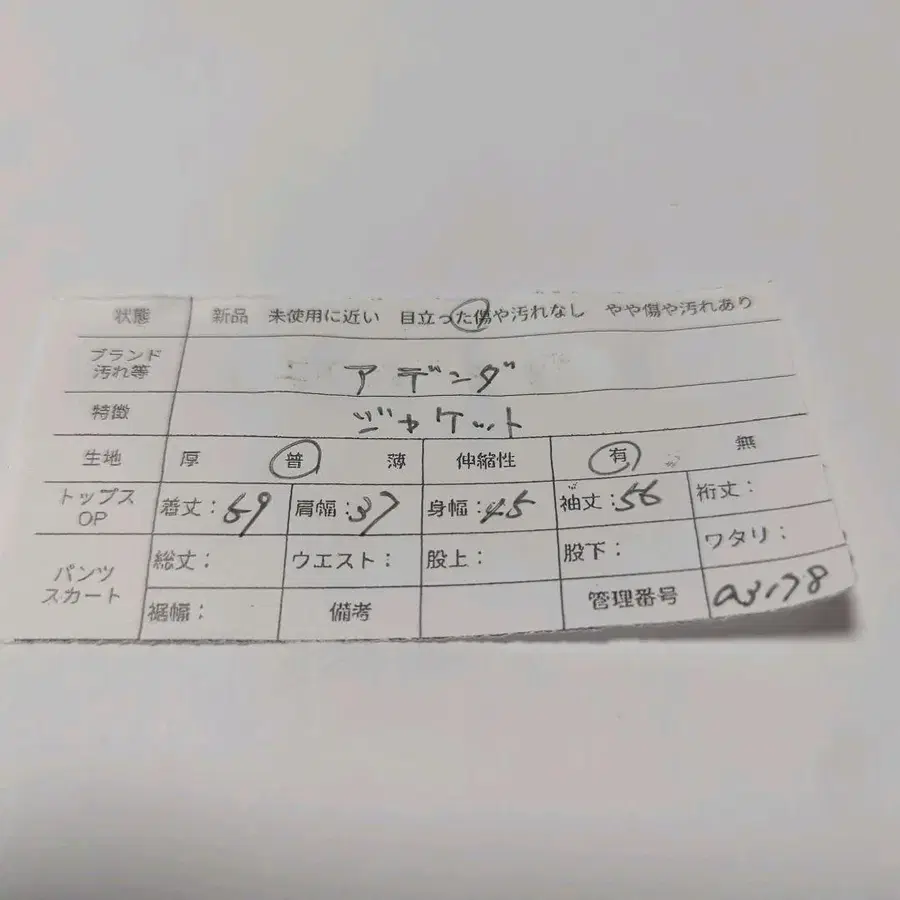 状態 新品 未使用に近い 目立った傷や汚れなし やや傷や汚れあり
ブランド
汚れ等 アデンダ
特徴 ジャケット
生地 厚 普 薄 伸縮性 有 無
トップス
OP 着丈:69 肩幅:37 身幅:45 袖丈:56 裄丈:
パンツ
スカート 総丈: ウエスト: 股上: 股下: ワタリ:
裾幅: 備考 管理番号